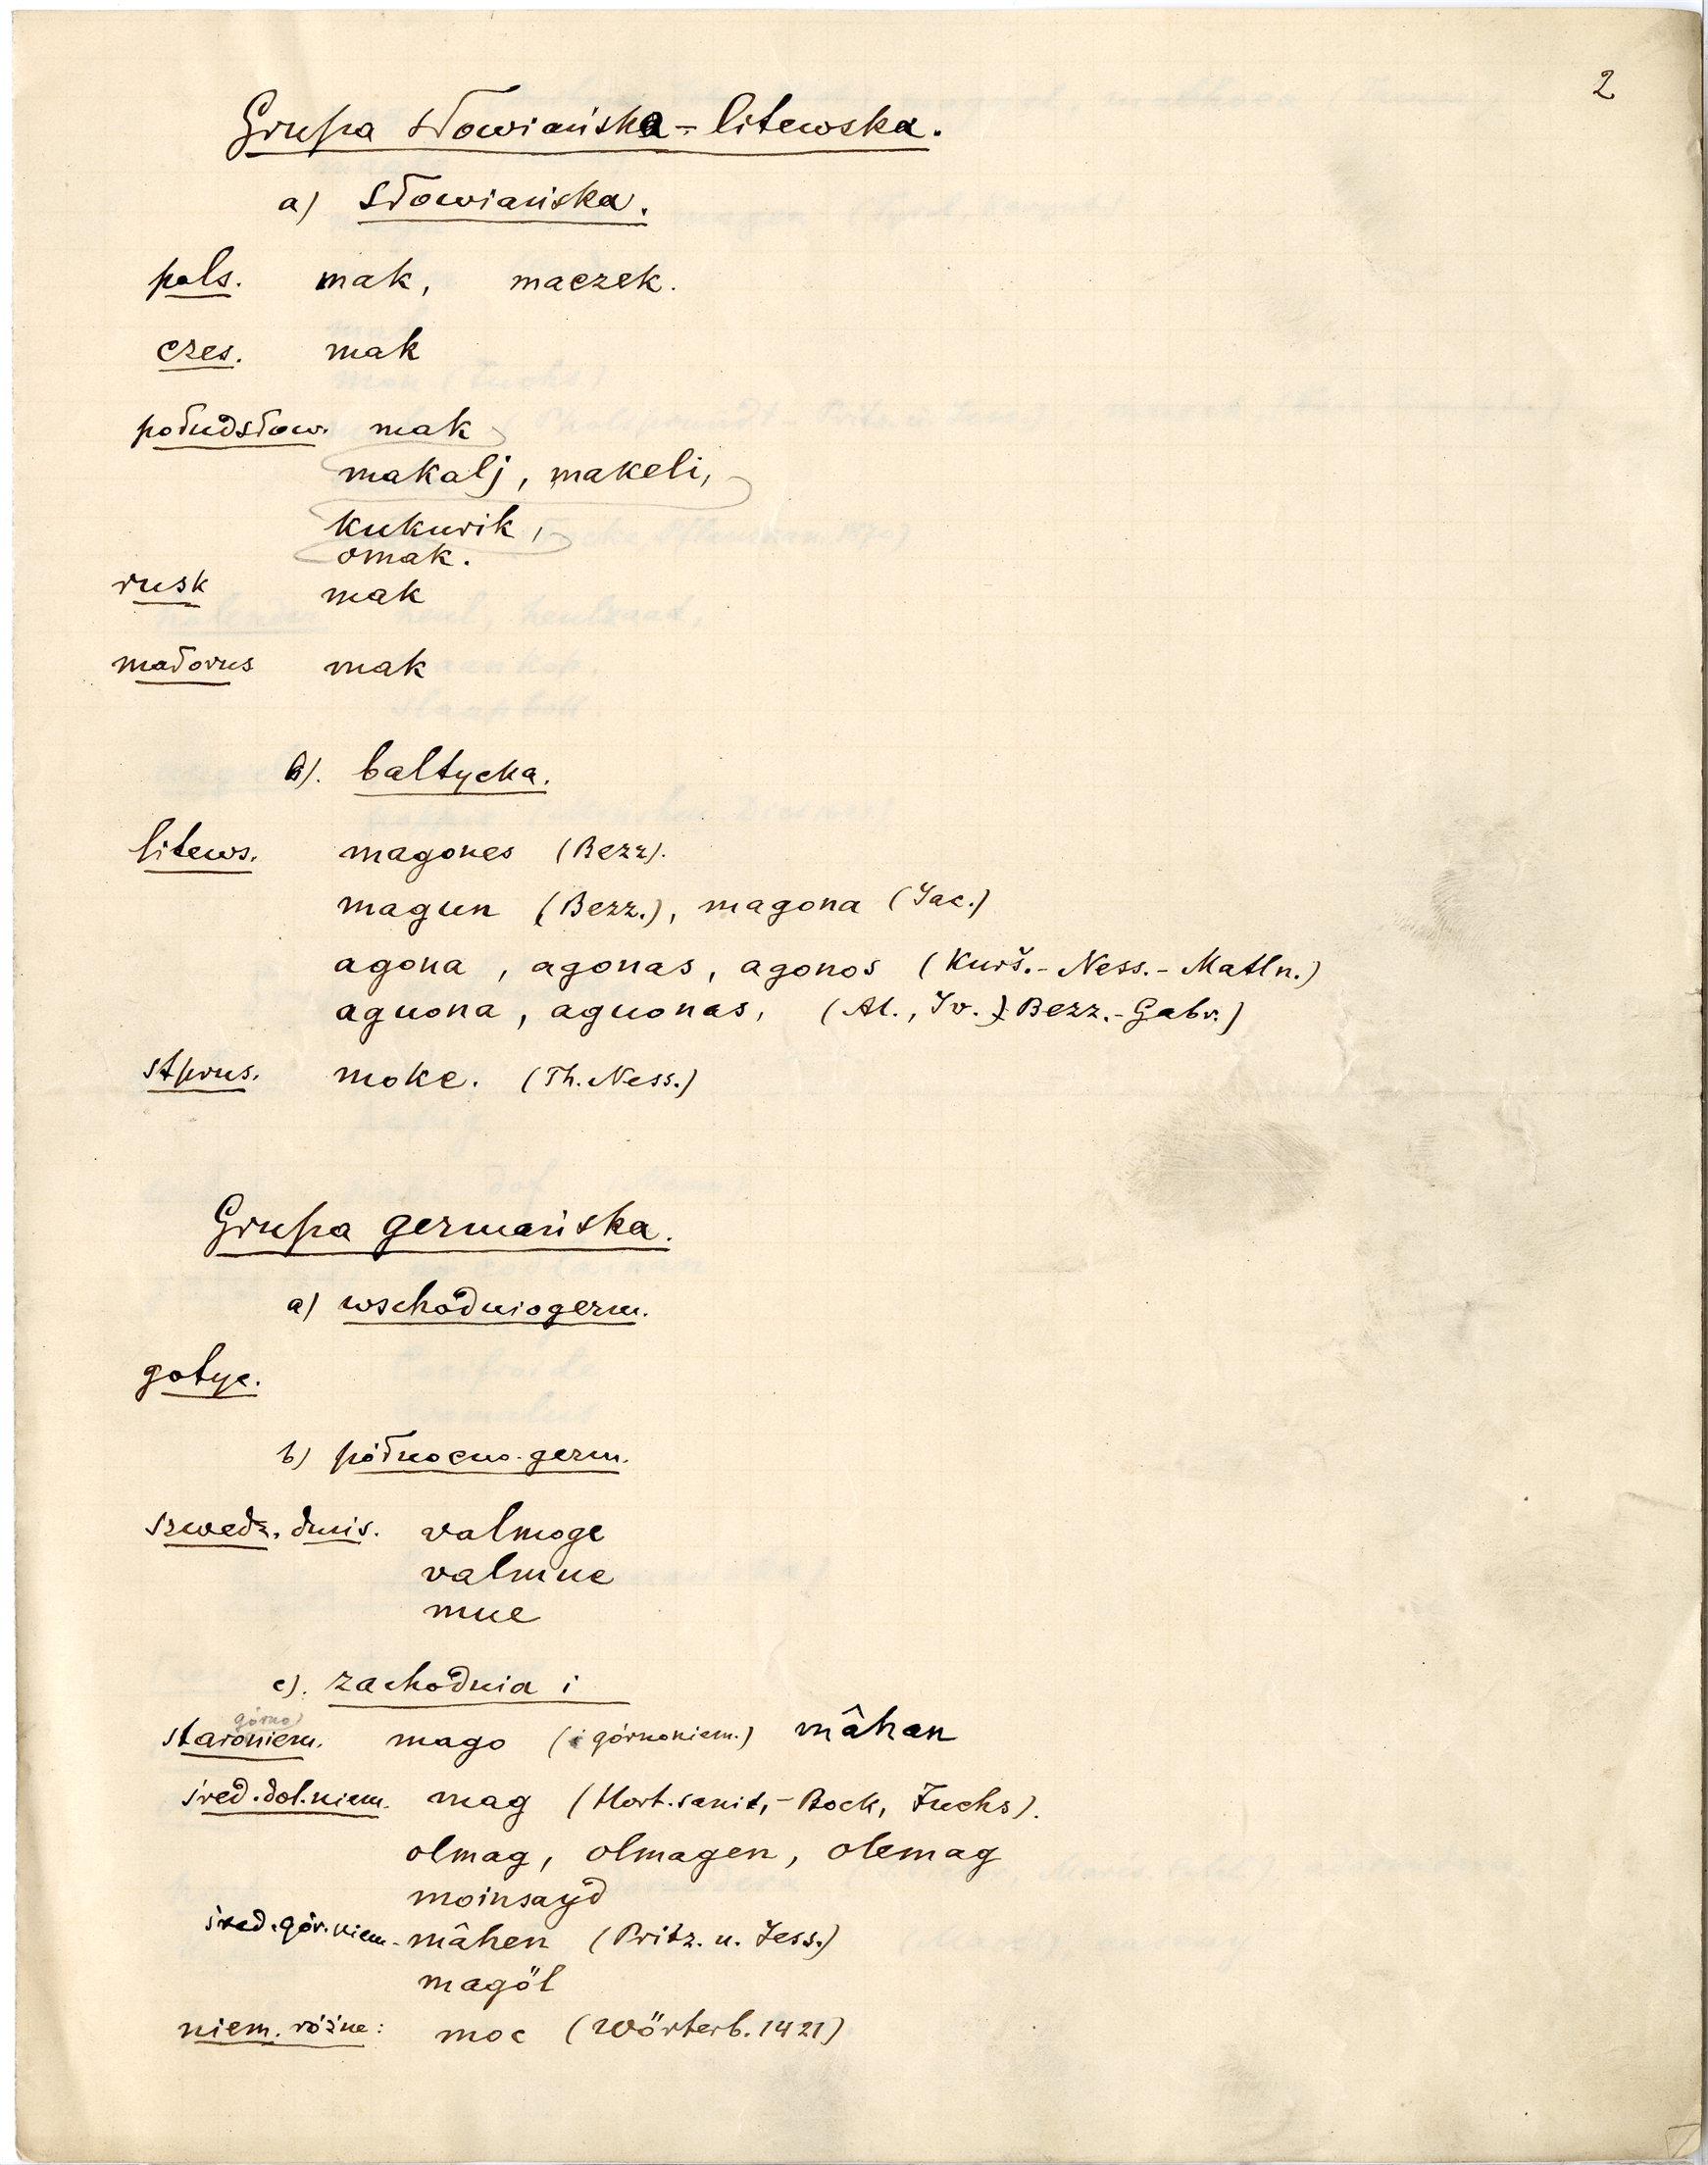 2
Grupa słowiańska-litewska.
a) Słowiańska.
pols. mak, maczek.
czes. mak
połudsłow. mak
makalj, makeli,
kukurik,
omak.
rusk mak
małorus mak
b). baltycka.
litews. magones (Bezz).
magun (Bezz.), magona (Jac.)
agona, agonas, agonos (Kurš.-Ness.-Matln.)
aguona, aguonas, (Al., Iv.) Bezz.-Gabr.)
stprus. moke. (Th. Ness.)
Grupa germańska.
a) wschódniogerm.
gotyc.
b) północno-germ.
szwedz. duńs. valmoge
valmue
mue
c). zachódnia i
górno
staroniem. mago (i górnoniem.) mâhan
śred.dol.niem. mag (Hort.sanit,-Bock, Fuchs).
olmag, olmagen, olemag
moinsayd
śred.gór.niem. mâhen (Pritz. u. Jess.)
magöl
niem. różne: moc (Wörterb. 1421)